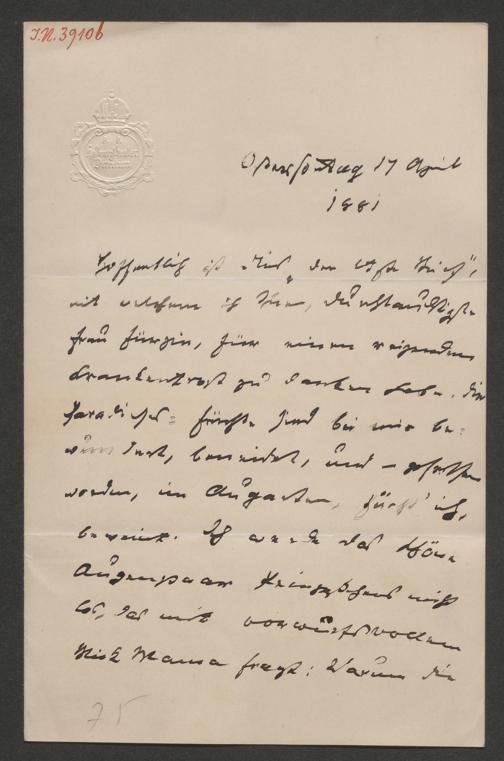 I.N. 39106
K. K.
Hofburgtheater
Direction
Ostersonntag 17 April
1881
Hoffentlich ist dies „der letzte Brief",
mit welchem ich Ihnen, durchlauchtigste
Frau Fürstin, für einen reizenden
Krankentrost zu danken habe. Die
Paradieses-Früchte sind bei mir be-
wundert, beneidet, und – gegessen
worden, im Augarten, fürcht' ich,
beweint. Ich werde das schöne
Augenpaar Prinzesschens nicht
los, das mit vorwurfsvollem
Blick Mama fragt: Warum die
75